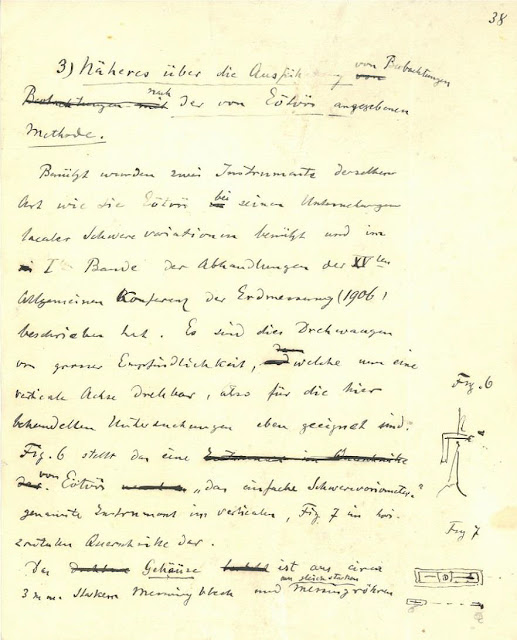 38
3) Näheres über die Ausführung von Beobachtungen
nach der von Eötvös angegebenen
Methode.
Benützt wurden zwei Instrumente derselben
Art wie sie Eötvös bei seinen Untersuchungen
localer Schwerevariationen benützt und im
I Bande der Abhandlungen der XVten
Allgemeinen Konferenz der Erdmessung (1906)
beschrieben hat. Es sind dies Drehwaagen
von grosser Empfindlichkeit, welche um eine
verticale Achse drehbar, also für die hier
behandelten Untersuchungen eben geeignet sind.
Fig. 6
Fig. 6 stellt das eine
von Eötvös „das einfache Schwerevariometer"
genannte Instrument im verticalen, Fig. 7 im hori-
zontalen Querschnitte dar.
Fig 7
Das Gehäuse ist aus circa
3 mm starkem Messingblech und aus gleich starken Messingröhren